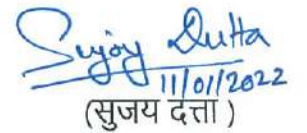 Sujoy Dutta
11/01/2022
(सुजय दत्ता)